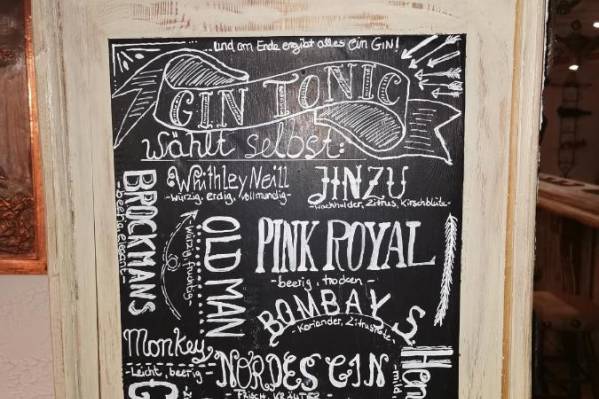 ...und am Ende ergibt alles ein GIN!
GIN TONIC
Wählt selbst:
Whithley Neill
-würzig, erdig, vollmundig-
JINZU
-Wachholder, Zitrus, Kirschblüte-
BROCKMANS
-beerig, elegant-
OLD MAN
-würzig, fruchtig-
PINK ROYAL
-beerig, trocken-
BOMBAY S
-Koriander, Zitrus
Monkey
-Leicht, beerig-
NORDES GIN
-FRISCH, KRÄUTER-
Hen
-mild
G